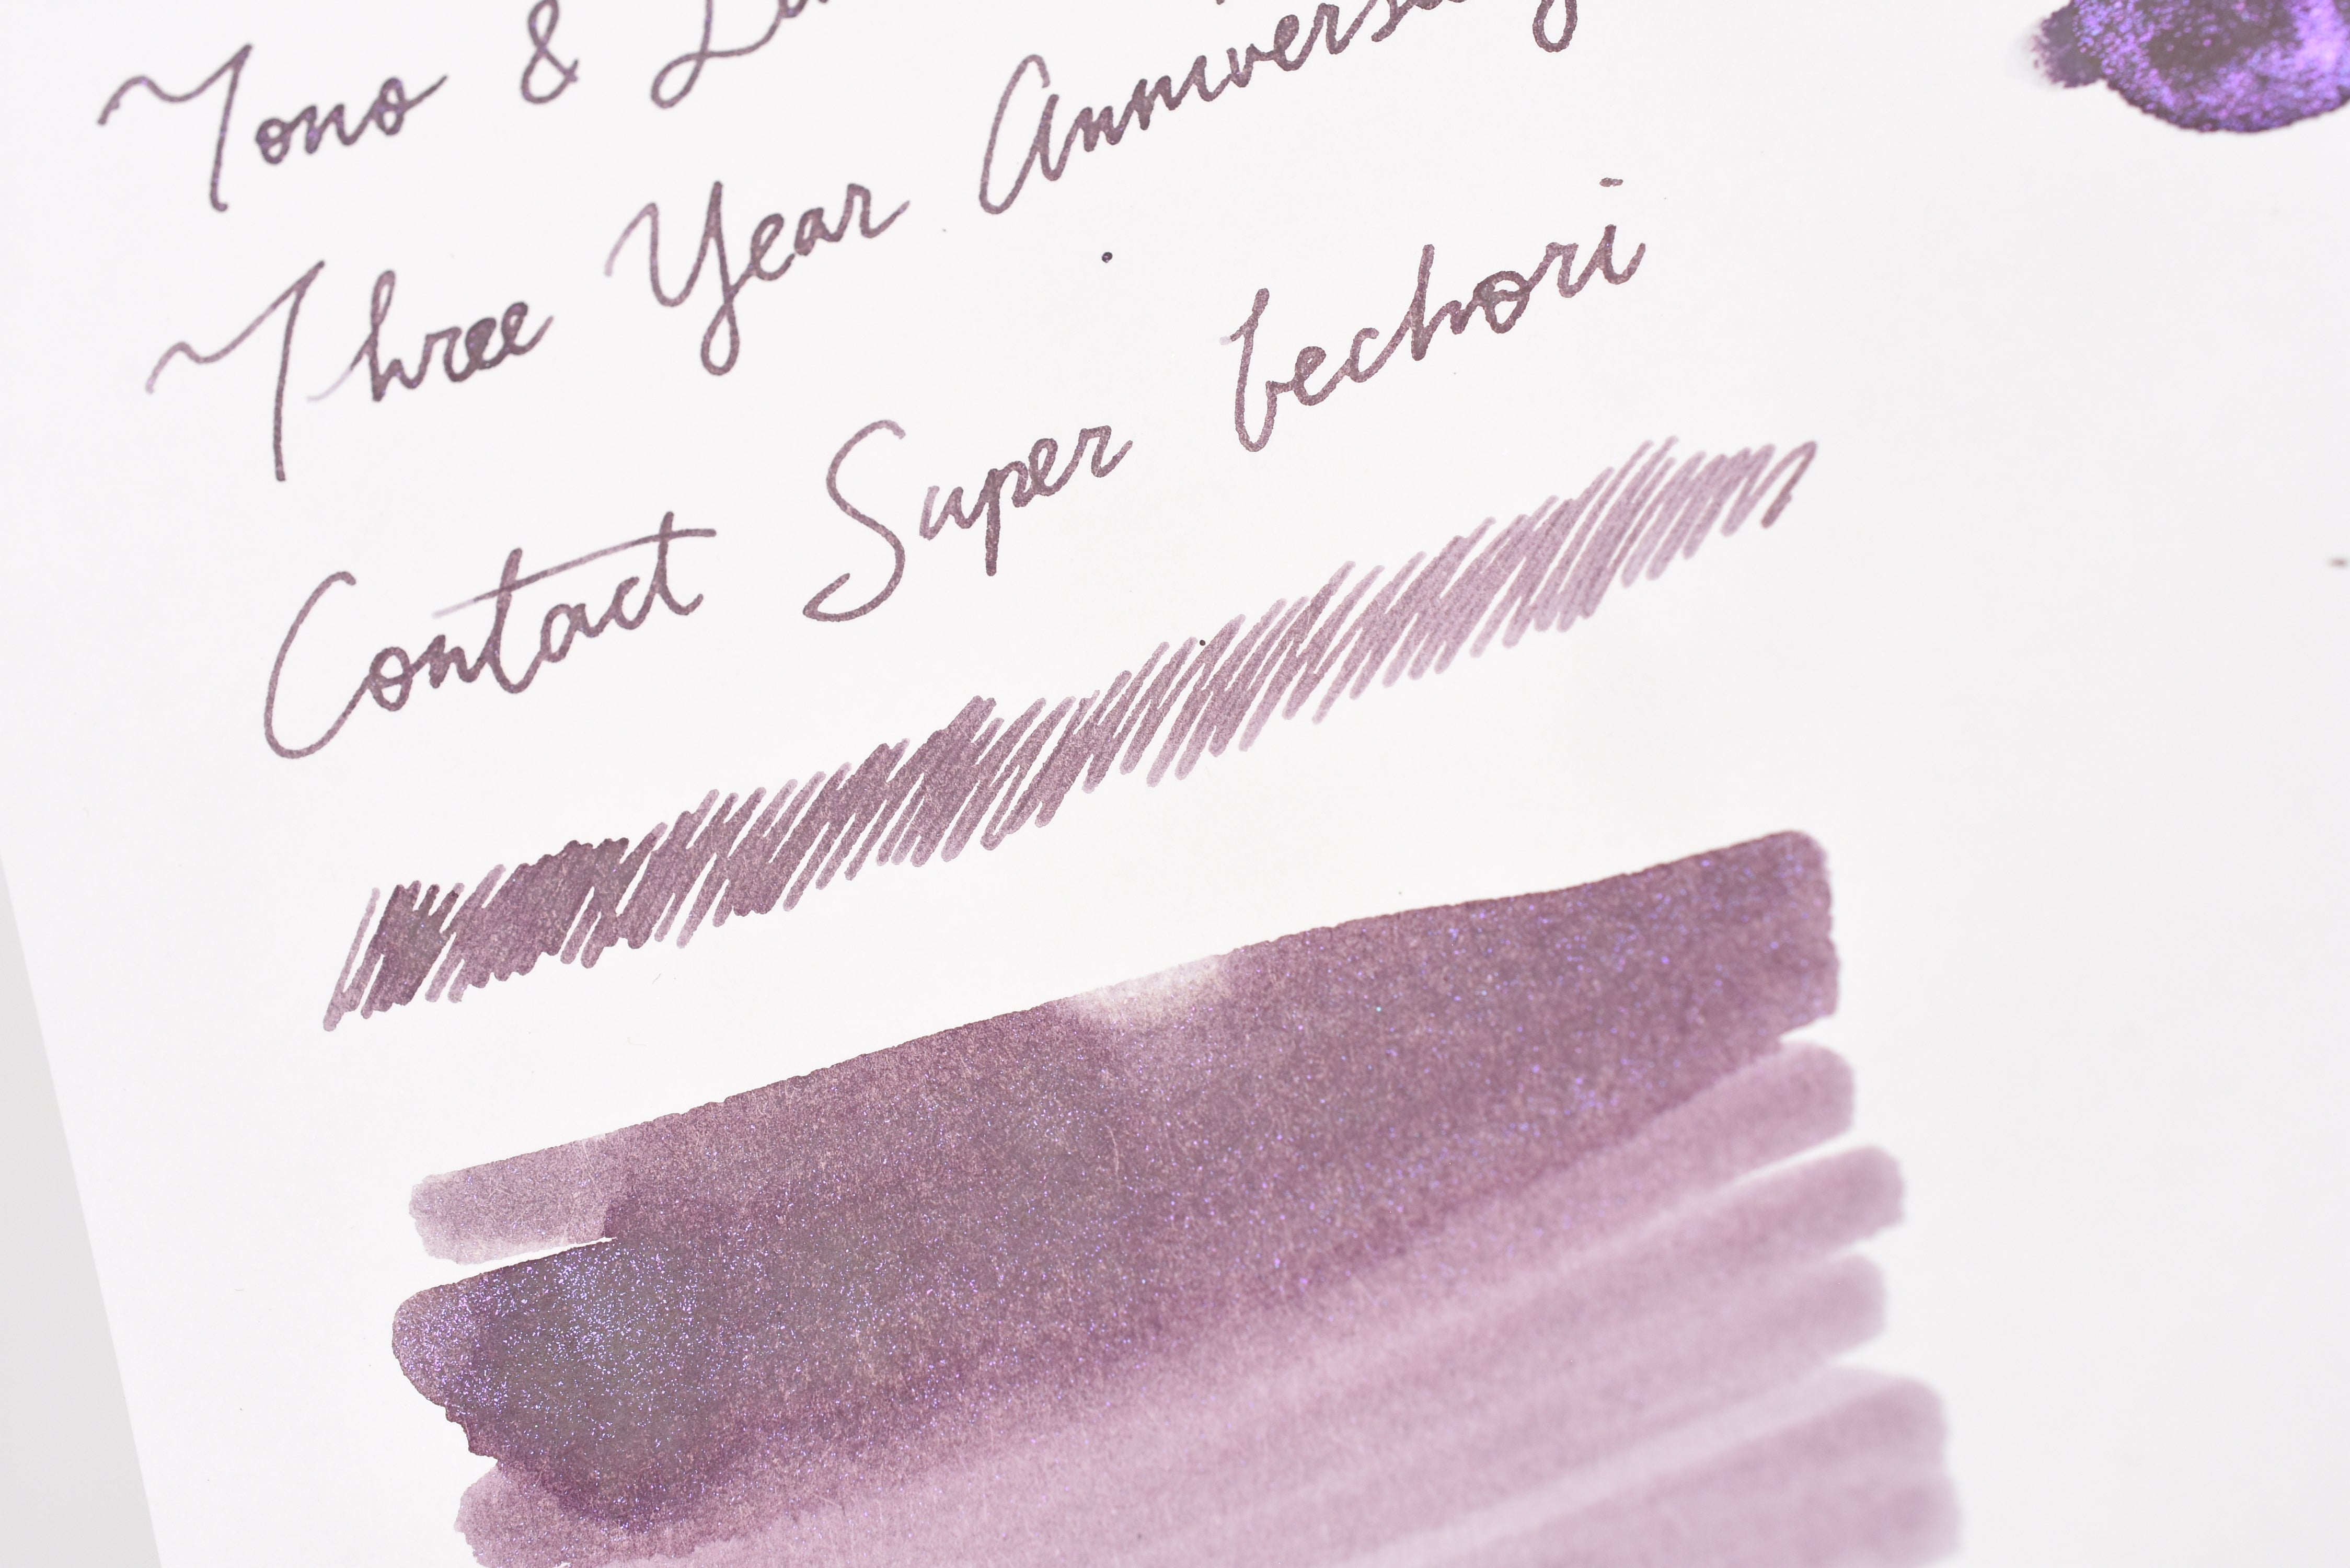 Tono &
Three Year Anniversary
Contact Super bechori